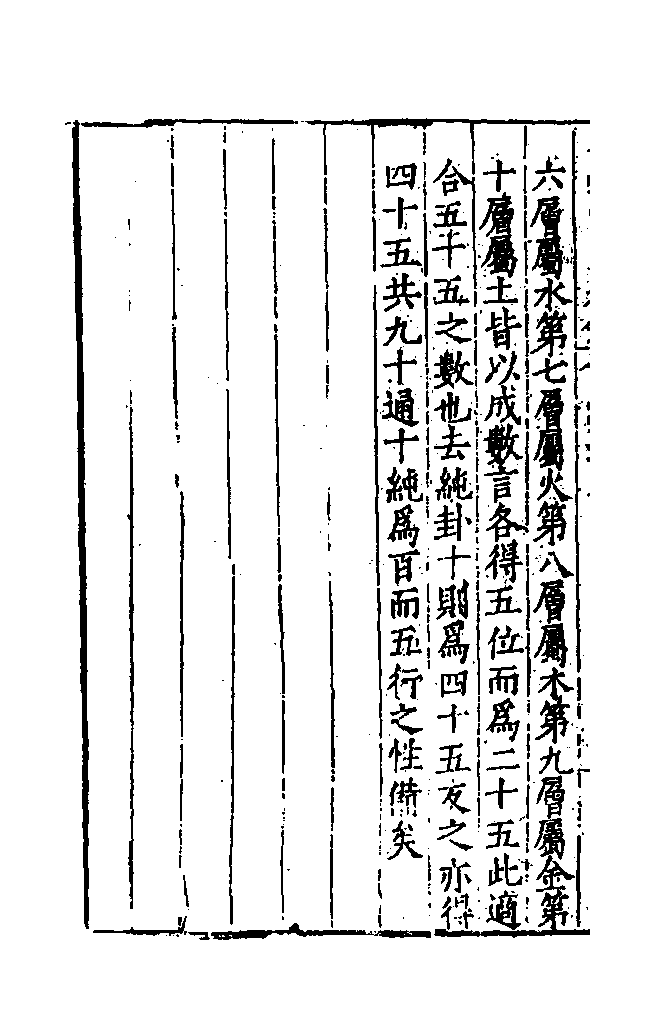 六層屬水第七層屬火第八層屬木第九層屬金第
十層屬土皆以成數言各得五位而為二十五此適
合五十五之數也去純卦十則為四十五反之亦得
四十五共九十通十純為百而五行之性備矣